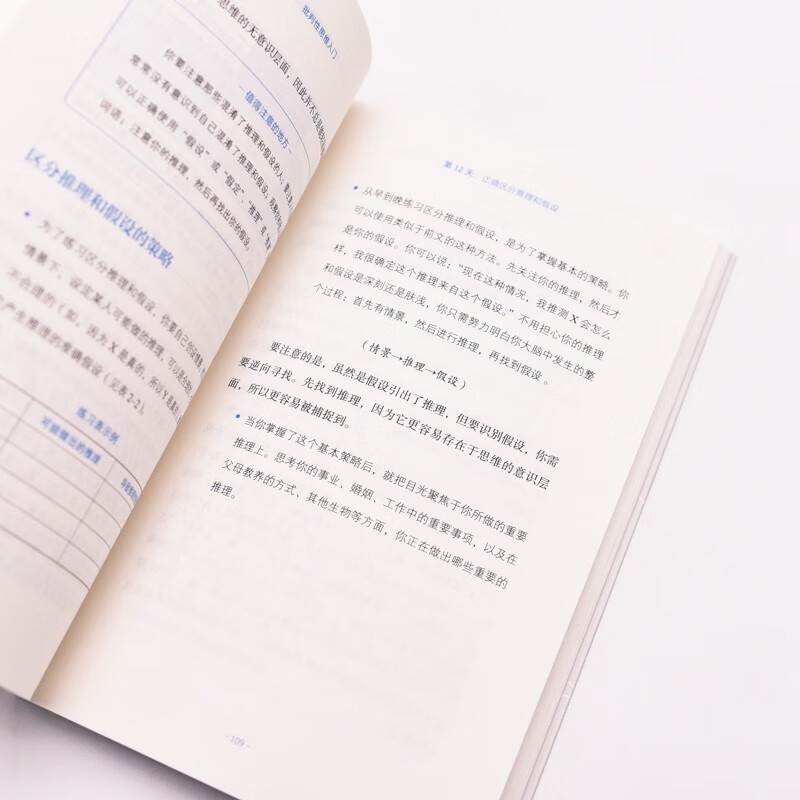 批判性思维入门
思维的无意识层面，因此并不总是能
值得注意的地方
你要注意那些混淆了推理和假设的人；要注意人
常常没有意识到自己混淆了推理和假设；观察你
可以正确使用“假设”或“假定”、“推理”或
词语；注意你的推理，然后再找出你的假设。
区分推理和假设的策略
• 为了练习区分推理和假设，你要自己的设
情景下，设定某人可能做的推理，可以是合
不合理的（如，因为X是真的，所以Y是真
产生推理的准确假设（见表2-2）。
练习表示例
可能做出的推理
第12天 正确区分推理和假设
• 从早到晚练习区分推理和假设，是为了掌握基本的策略。你
可以使用类似于前文的这种方法。先关注你的推理，然后才
是你的假设。你可以说：“现在这种情况，我推测X会怎么
样，我很确定这个推理来自这个假设。”不用担心你的推理
和假设是深刻还是肤浅，你只需努力明白你大脑中发生的整
个过程：首先有情景，然后进行推理，再找到假设。
（情景→推理→假设）
要注意的是，虽然是假设引出了推理，但要识别假设，你需
要逆向寻找。先找到推理，因为它更容易存在于思维的意识层
面，所以更容易被捕捉到。
• 当你掌握了这个基本策略后，就把目光聚焦于你所做的重要
推理上。思考你的事业、婚姻、工作中的重要事项，以及在
父母教养的方式、其他生物等方面，你正在做出哪些重要的
推理。
- 109 -